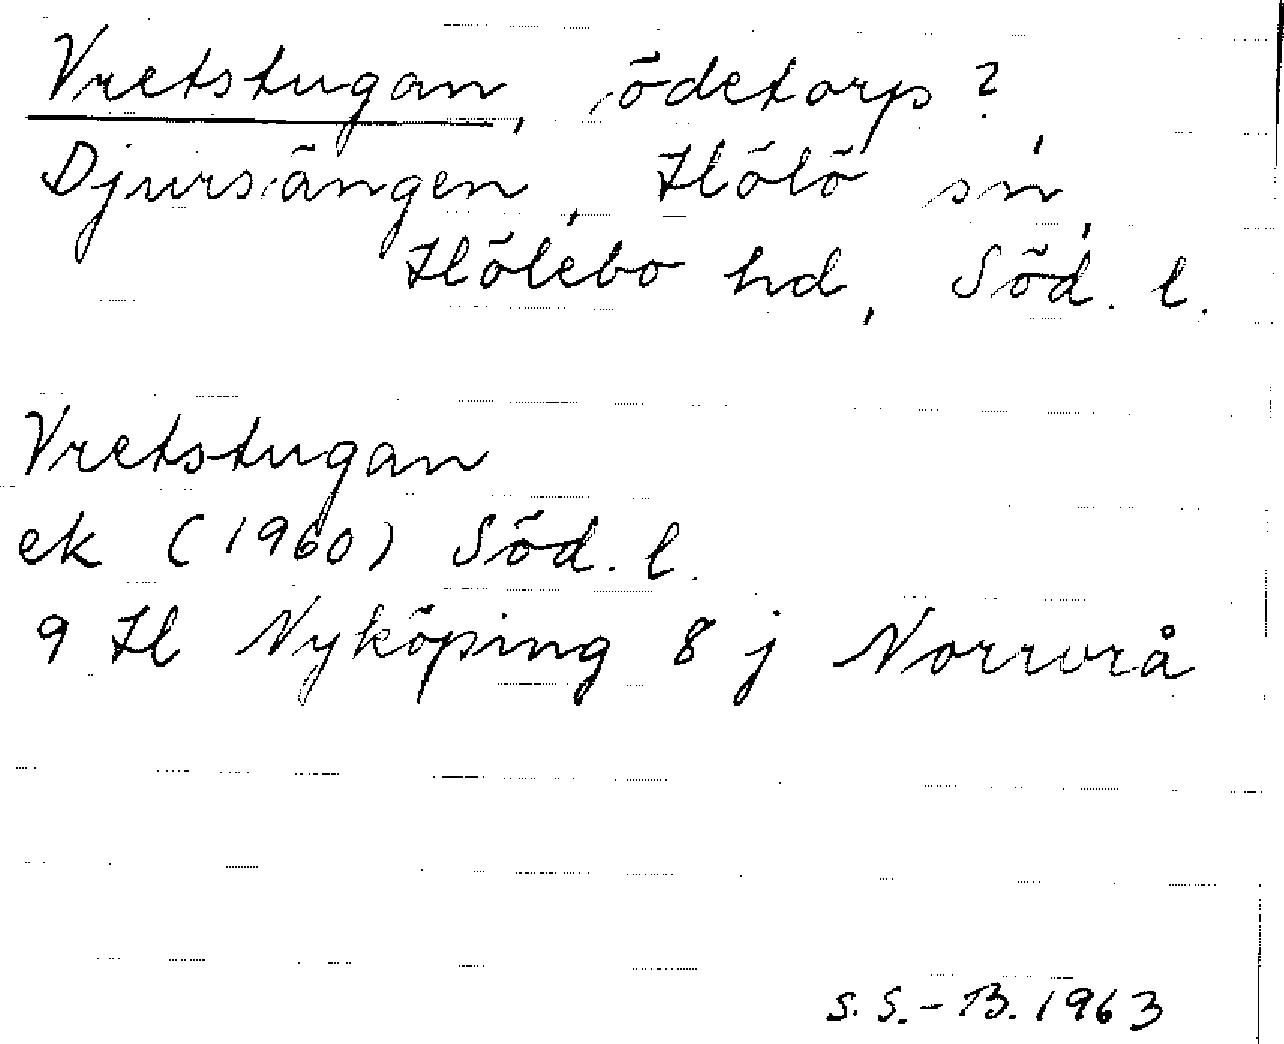 Vretstugan, ödetorp?,
Djursängen, Hölö sn,
Hölebo hd, Söd. l.
Vretstugan
ek (1960) Söd. l.
9 H Nyköping 8 j Norrvrå
S. S. - B. 1963